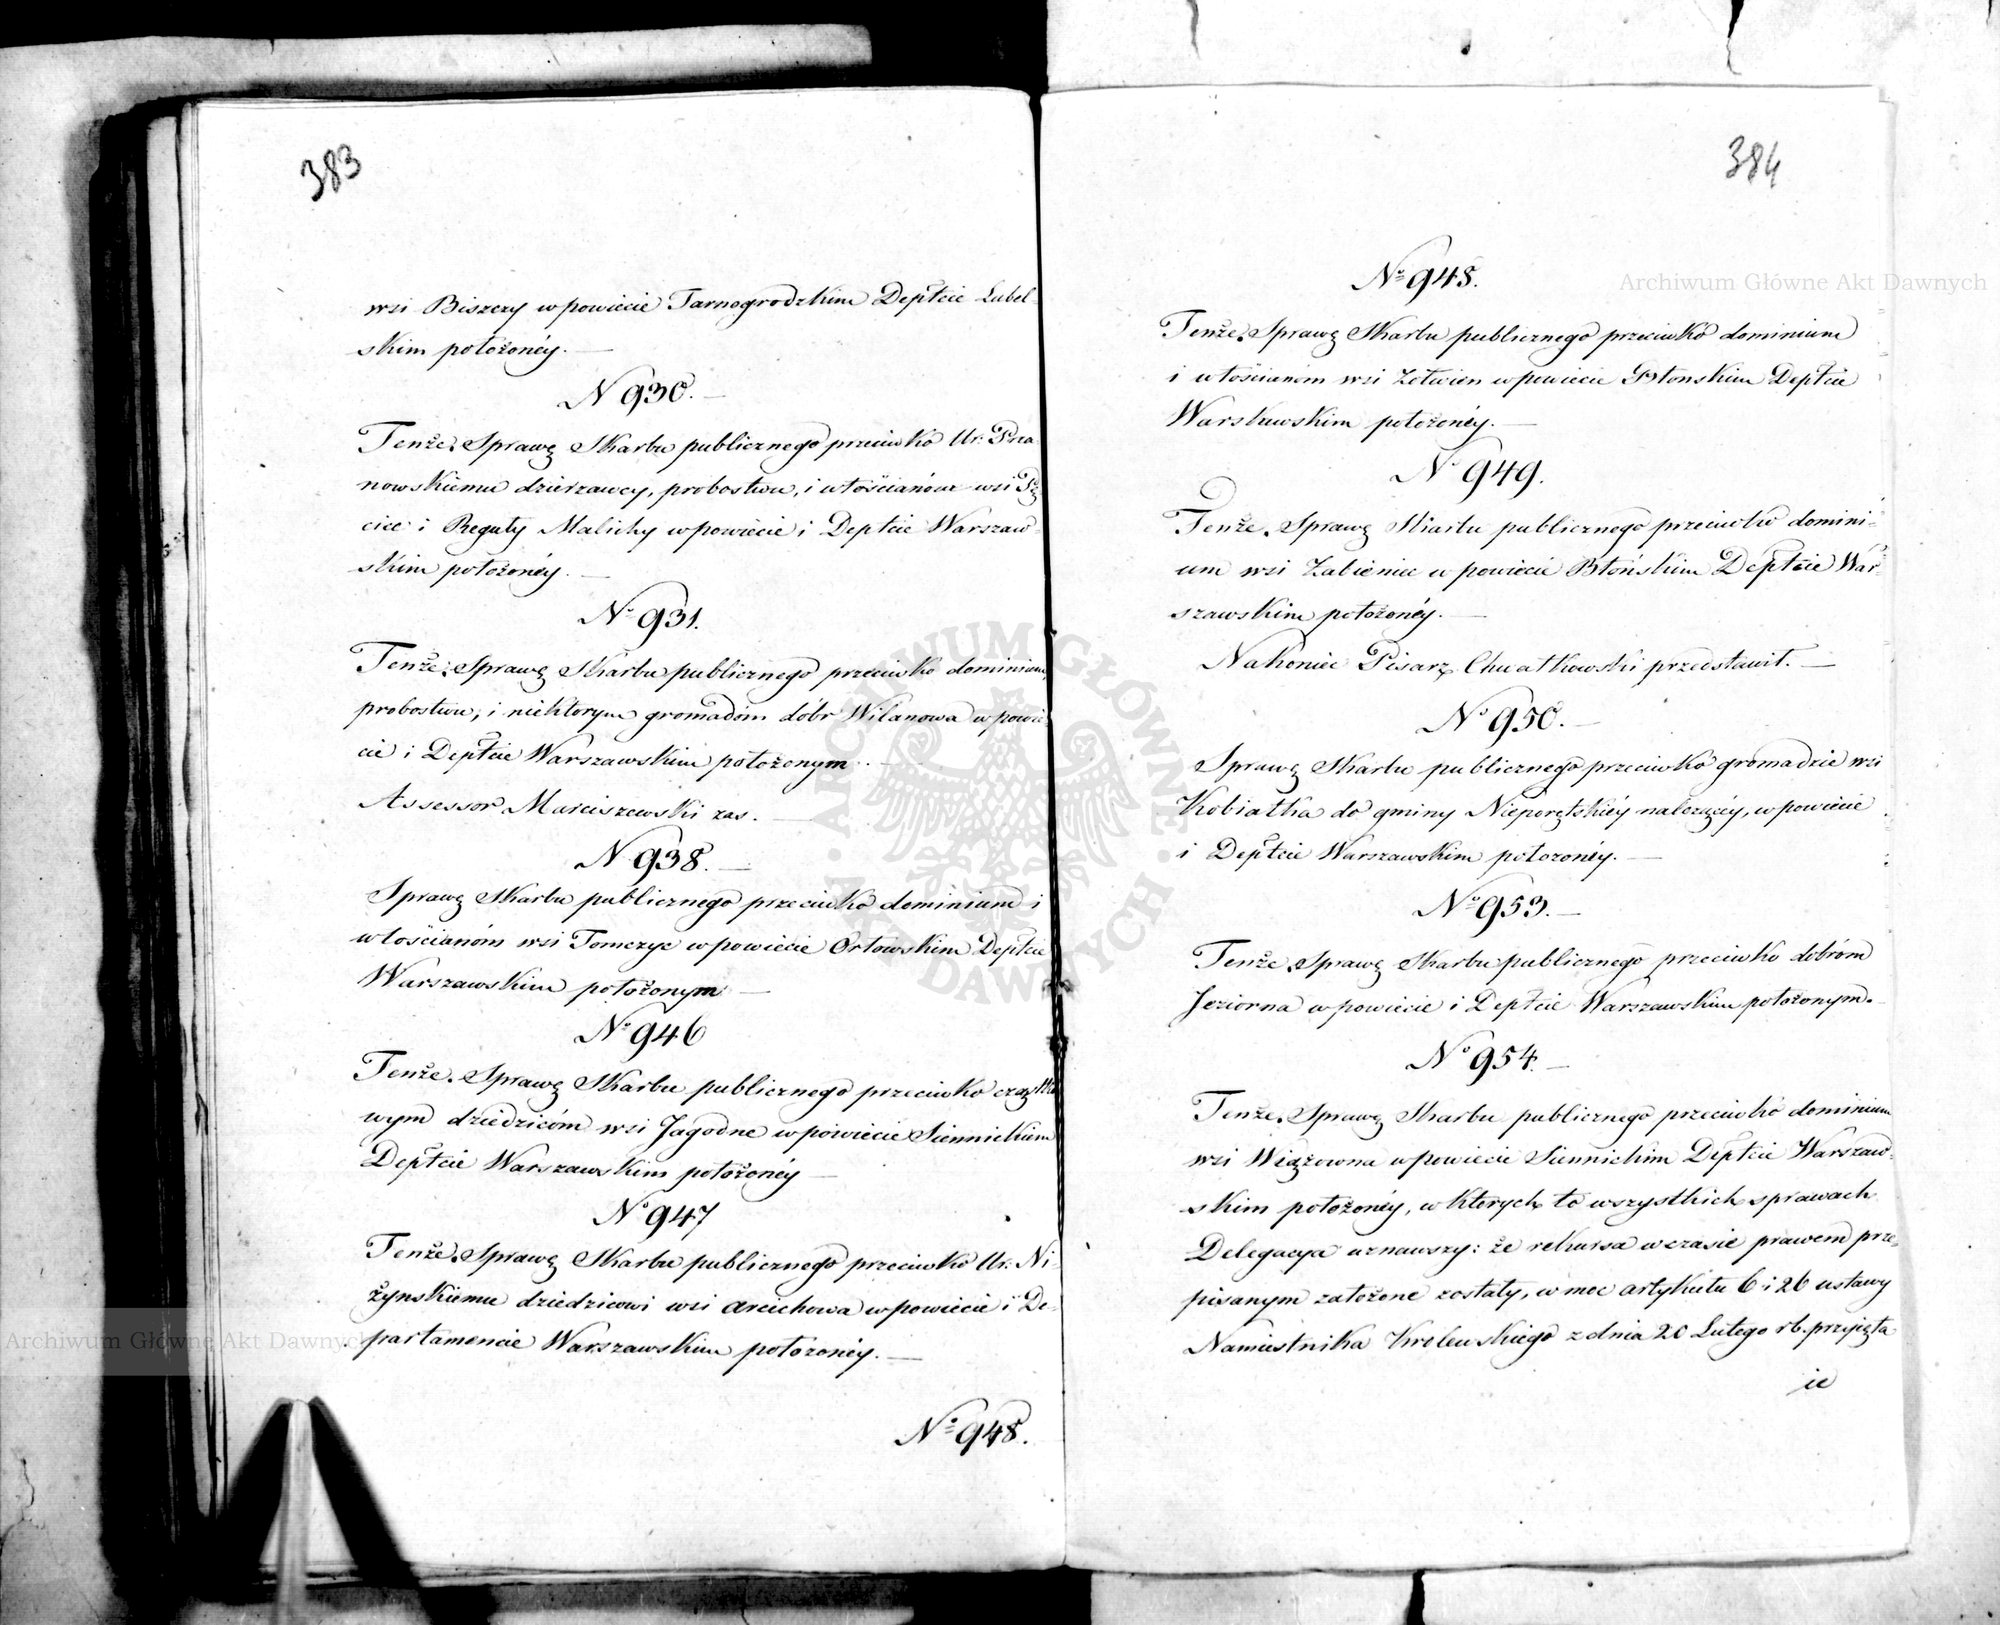 383
wsi Biszczy w powiecie Tarnogrodzkim Depłcie Lubel-
skim położonéy. —
N 930. —
Tenże. Sprawę Skarbu publicznego przeciwko Ur:
nowskiemu dzierzawcy, probostwu, i włościanóm wsi Pę
cice i Reguły Malichy w powiecie i Depłcie Warszaw-
skim położonéy. —
No 931.
Tenże. Sprawę Skarbu publicznego przeciwko dominium,
probostwu, i niektorym gromadóm dóbr Wilanowa w powie
cie i Depłcie Warszawskim położonym. —
Assessor Marciszewski zas. —
N 938. —
Sprawę Skarbu publicznego przeciwko dominium i
włościanóm wsi Tomczyc w powiecie Orłowskim Depłcie
Warszawskim położonym —
No 946
Tenże. Sprawę Skarbu publicznego przeciwko cząstko
wym dziedzicóm wsi Jagodne w powiecie Siennickim
Depłcie Warszawskim położonéy —
No 947
Tenże. Sprawę Skarbu publicznego przeciwko Ur: Ni-
żynskiemu dziedzicowi wsi Arcichowa w powiecie i De-
partamencie Warszawskim polozonéy. —
No 948.
384
No 948.
Tenże. Sprawę Skarbu publicznego przeciwkó dominium
i włościanóm wsi Żołwien w powiecie Błonskim Depłcie
Warszawskim położonéy. —
No 949.
Tenże. Sprawę Skarbu publicznego przeciwko domini-
um wsi Zabieniec w powiecie Błońskim Depłcie War-
szawskim położonéy. —
Nakoniec Pisarz Chwatkowski przedstawił. —
No 950. —
Sprawę Skarbu publicznego przeciwko gromadzie wsi
Kobiałka do gminy Nieporętskiéy nalezącéy, w powiecie
i Depłcie Warszawskim polozonéy. —
No 953. —
Tenże. Sprawę Skarbu publicznego przeciwko dobróm
Jeziorna w powiecie i Depłcie Warszawskim położonym.
No 954. —
Tenże. Sprawę Skarbu publicznego przeciwko dominium
wsi Wiązowna w powiecie Siennickim Depłcie Warszaw-
skim położonéy, w ktorych to wszystkich sprawach
Delegacya uznawszy: że rekursa w czasie prawem prze-
pisanym założone zostały, w moc artykułu 6 i 26 ustawy
Namiestnika Krolewskiego z dnia 20 Lutego rb. przyięła
ie
Archiwum Główne Akt Dawnych
Archiwum Główne Akt Dawnych
ARCHIWUM GŁÓWNE AKT DAWNYCH